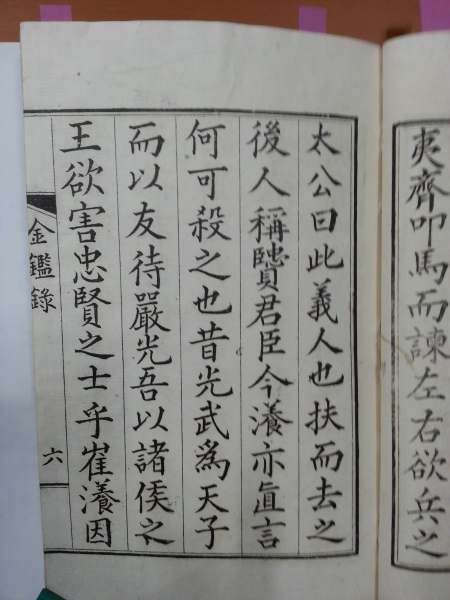 夷齊叩馬而諫左右欲兵之
太公曰此義人也扶而去之
後人稱贒君臣今瀁亦眞言
何可殺之也昔光武爲天子
而以友待嚴光吾以諸侯之
王欲害忠賢之士乎崔瀁因
金鑑錄
六